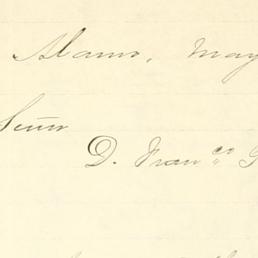 Alamo, May
Señor
D. Fran.co G